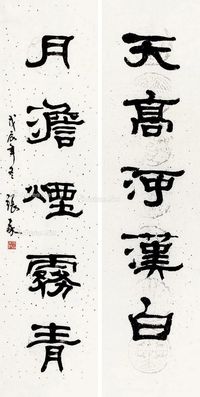 天高河漢白
月澹煙霧青
戊辰年冬 張